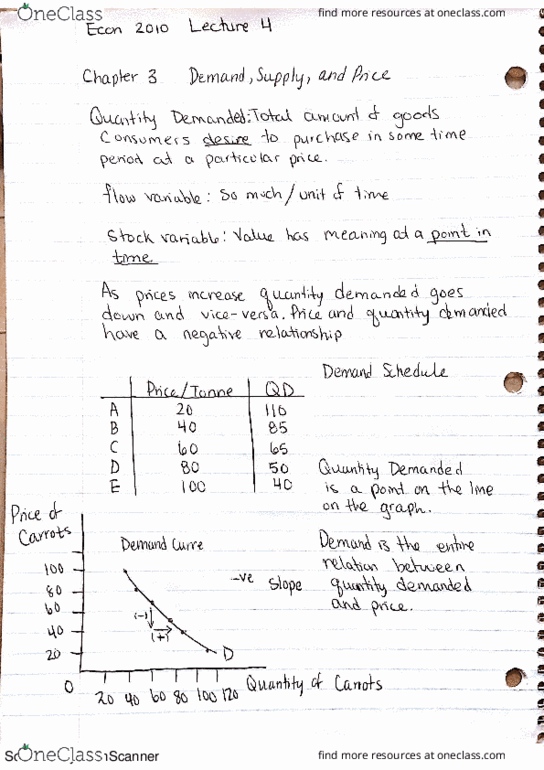 OneClass
find more resources at oneclass.com
Econ 2010 Lecture 4
Chapter 3 Demand, Supply, and Price
Quantity Demanded: Total amount of goods
Consumers desire to purchase in some time
period at a particular price.
flow variable: So much / unit of time
Stock variable: Value has meaning at a point in
time
As prices increase quantity demanded goes
down and vice-versa. Price and quantity demanded
have a negative relationship
Demand Schedule
Price/Tonne QD
A 20 110
B 40 85
C 60 65
D 80 50
E 100 40
Quantity Demanded
is a point on the line
on the graph.
Price of
Carrots
Demand Curve
Demand is the entire
relation between
quantity demanded
and price.
-ve slope
100
80
60
40
20
(-)
(+)
D
0
20 40 60 80 100 120 Quantity of Carrots
OneClass
Scanner
find more resources at oneclass.com